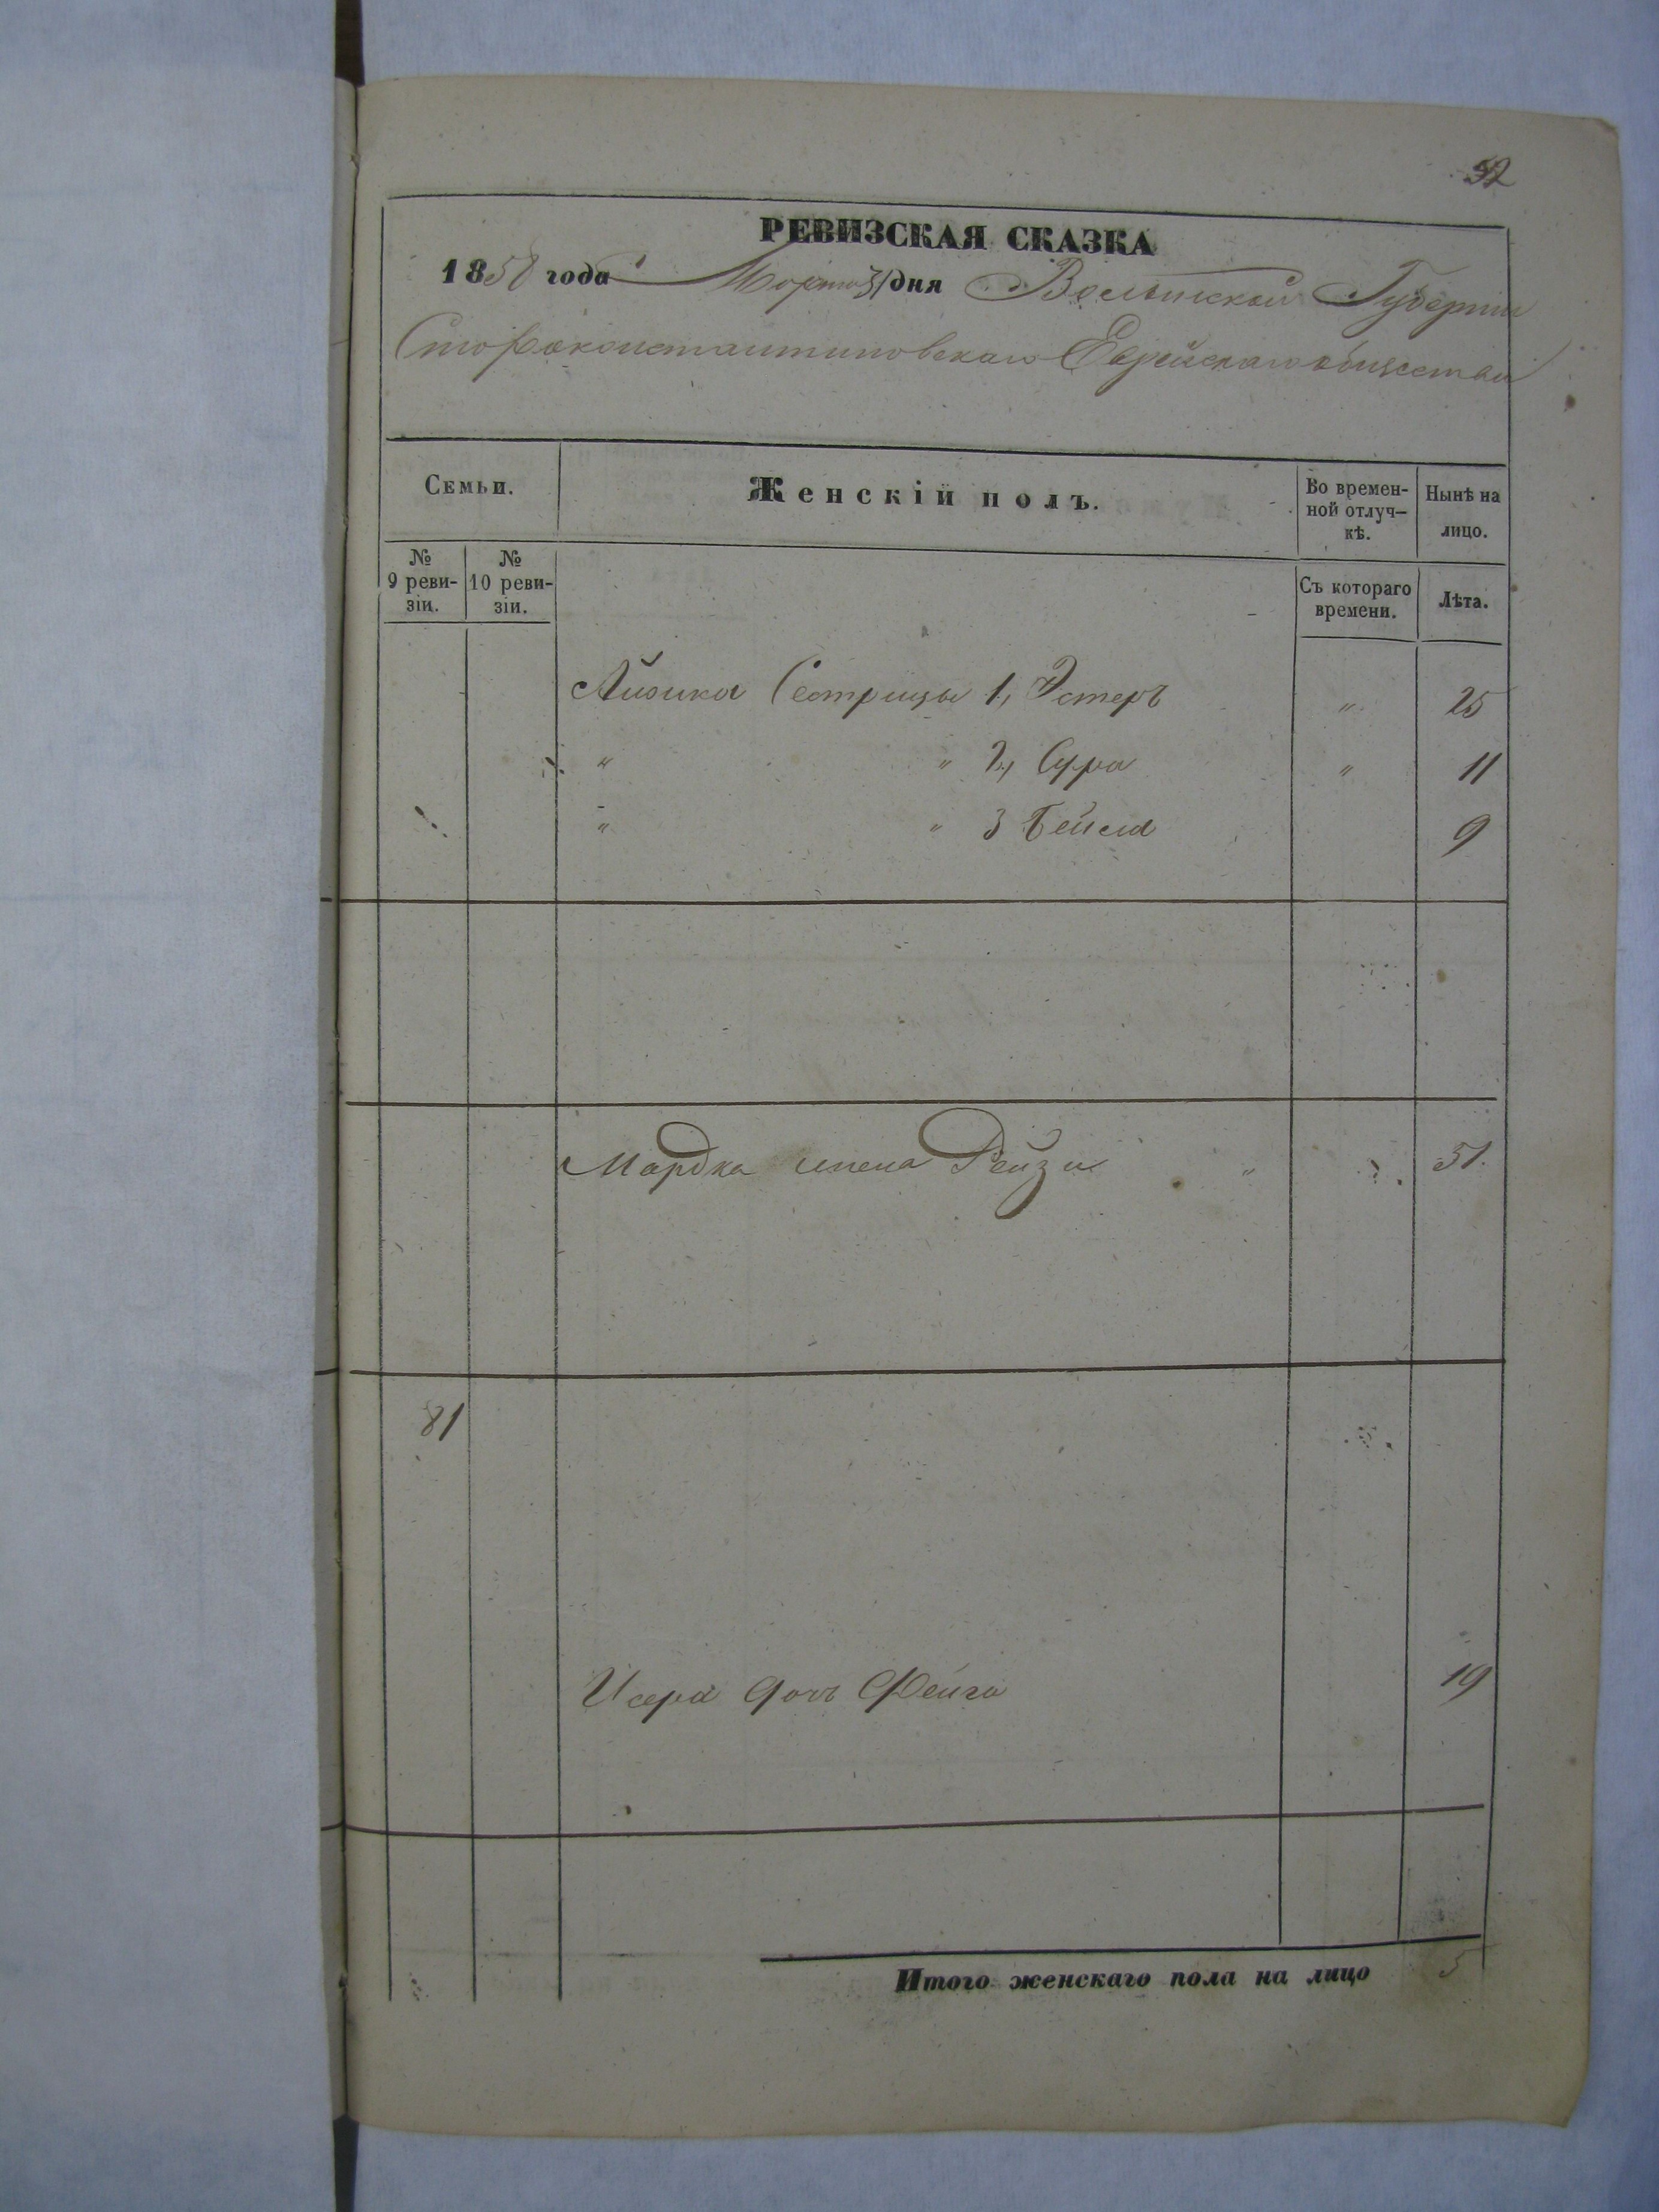 92
РЕВИЗСКАЯ СКАЗКА
1858 года Марта 31 дня Волынской Губернии
Староконстантиновскаго Еврейскаго общества
Семьи.
Женскій полъ.
Во времен-
ной отлуч-
кѣ.
Нынѣ на
лицо.
№
9 реви-
зіи.
№
10 реви-
зіи.
Съ котораго
времени.
Лѣта.
Айзика Сестрицы 1, Эстеръ " 25
" " 2, Сура " 11
" " 3 Бейла 9
Мордка жена Рейзя " 51.
81
Исера дочь Фейга 19
Итого женскаго пола на лицо 5